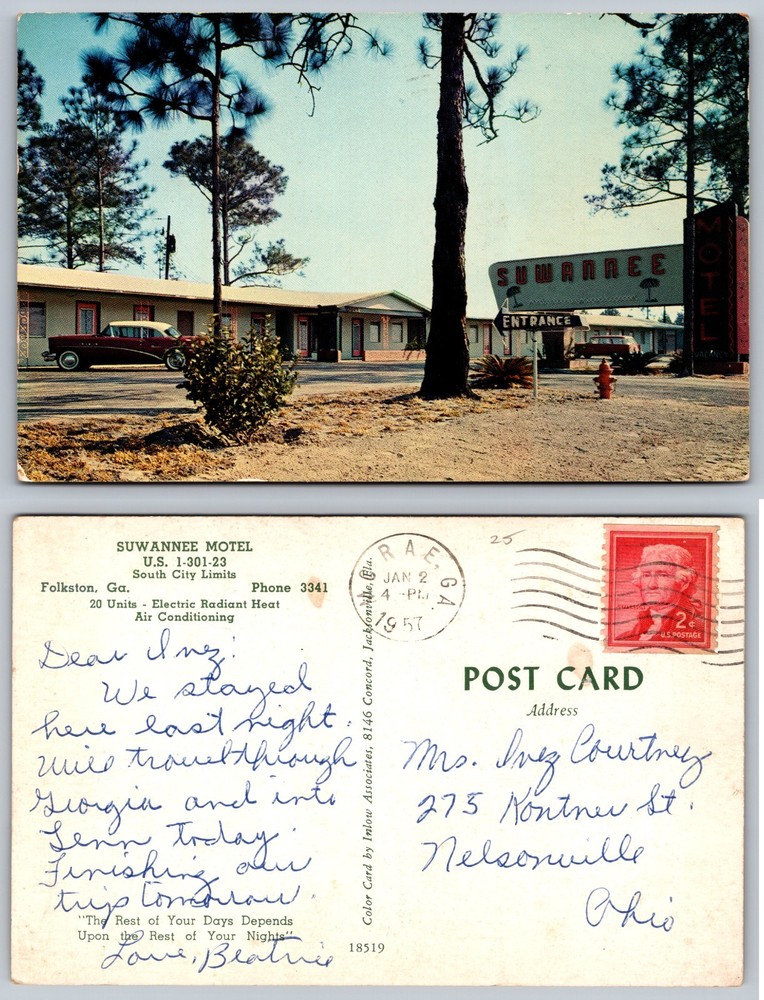 SUWANNEE
MOTEL
ENTRANCE
SUWANNEE MOTEL
U.S. 1-301-23
South City Limits
Folkston, Ga. Phone 3341
20 Units - Electric Radiant Heat
Air Conditioning
Dear Inez!
We stayed
here last night.
Will travel through
Georgia and into
Tenn today.
Finishing our
trip tomorrow.
"The Rest of Your Days Depends
Upon the Rest of Your Nights"
Love, Beatrice
Color Card by Inlow Associates, 8146 Concord, Jacksonville, Fla.
18519
RAE, GA
JAN 2
4 - PM
1957
25
2¢
U.S. POSTAGE
POST CARD
Address
Mrs. Inez Courtney
275 Kontner St.
Nelsonville
Ohio